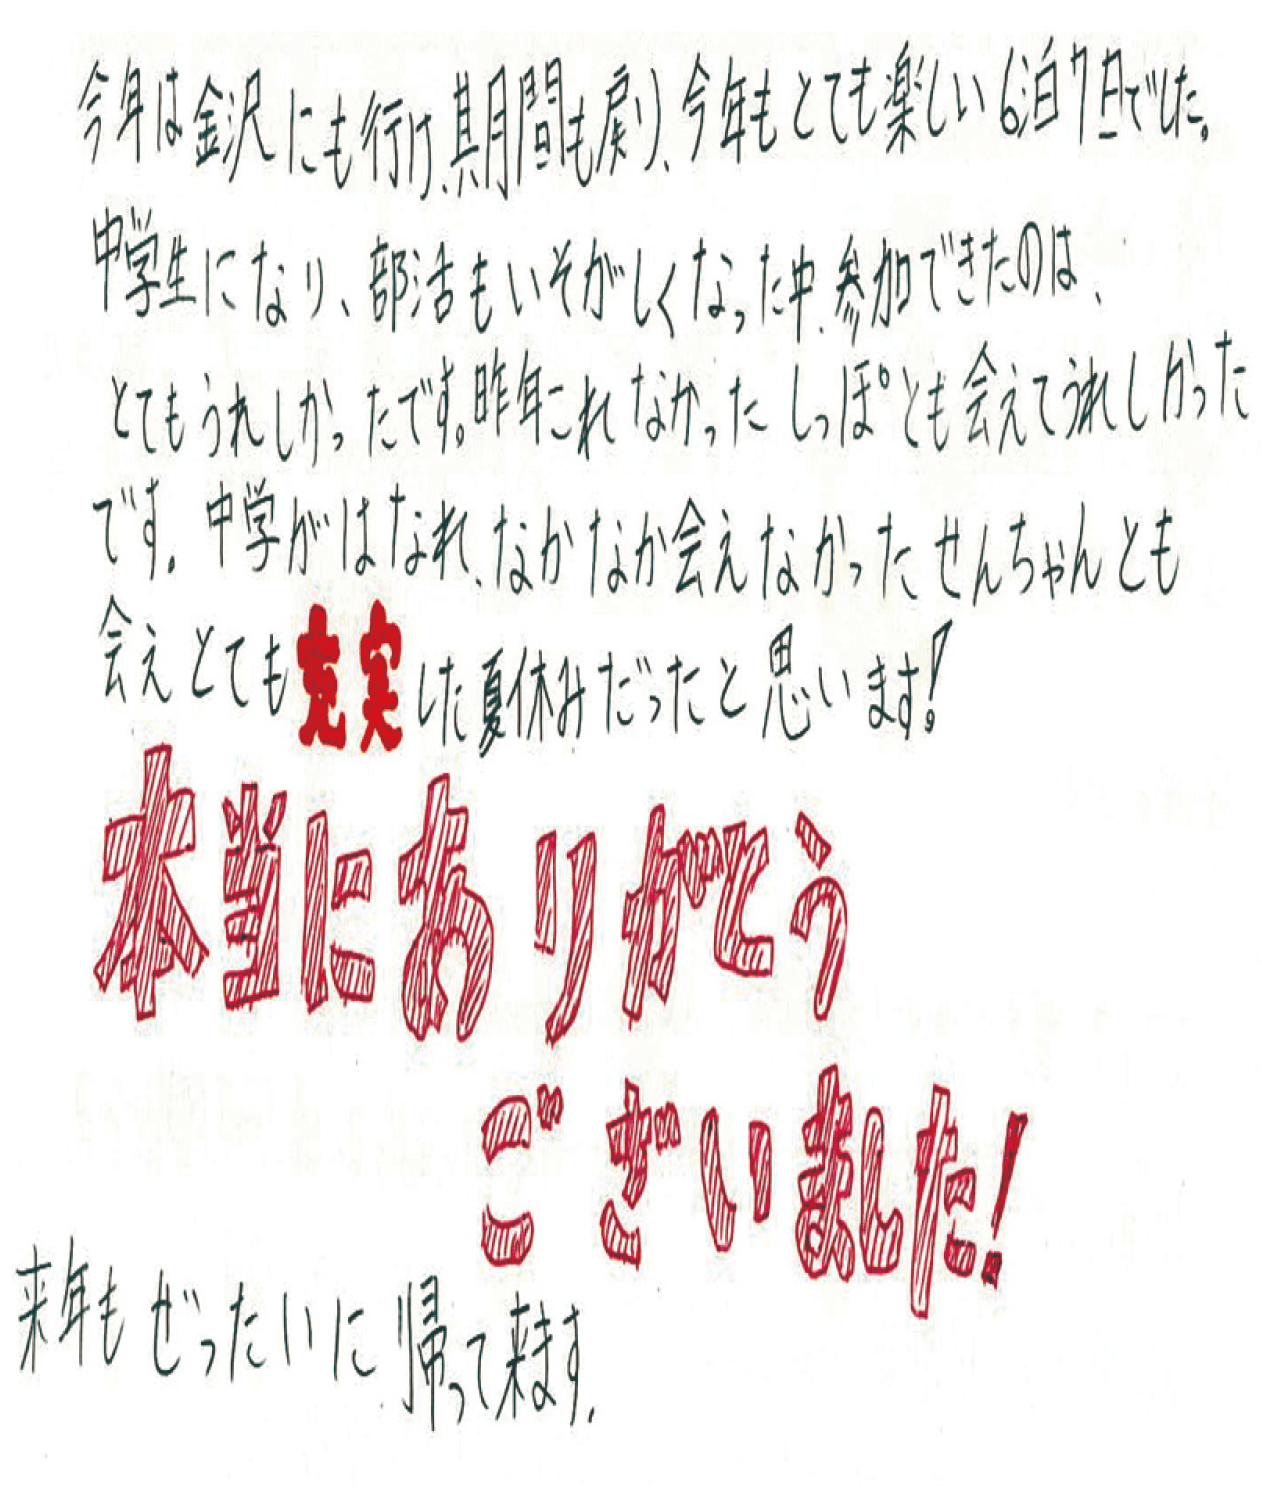 今年は金沢にも行け、期間も戻り、今年もとても楽しい6泊7日でした。
中学生になり、部活もいそがしくなった中、参加できたのは、
とてもうれしかったです。昨年これなかったしっぽとも会えてうれしかった
です。中学がはなれ、なかなか会えなかったせんちゃんとも
会えとても充実した夏休みだったと思います!
本当にありがとう
ございました!
来年もぜったいに帰って来ます.